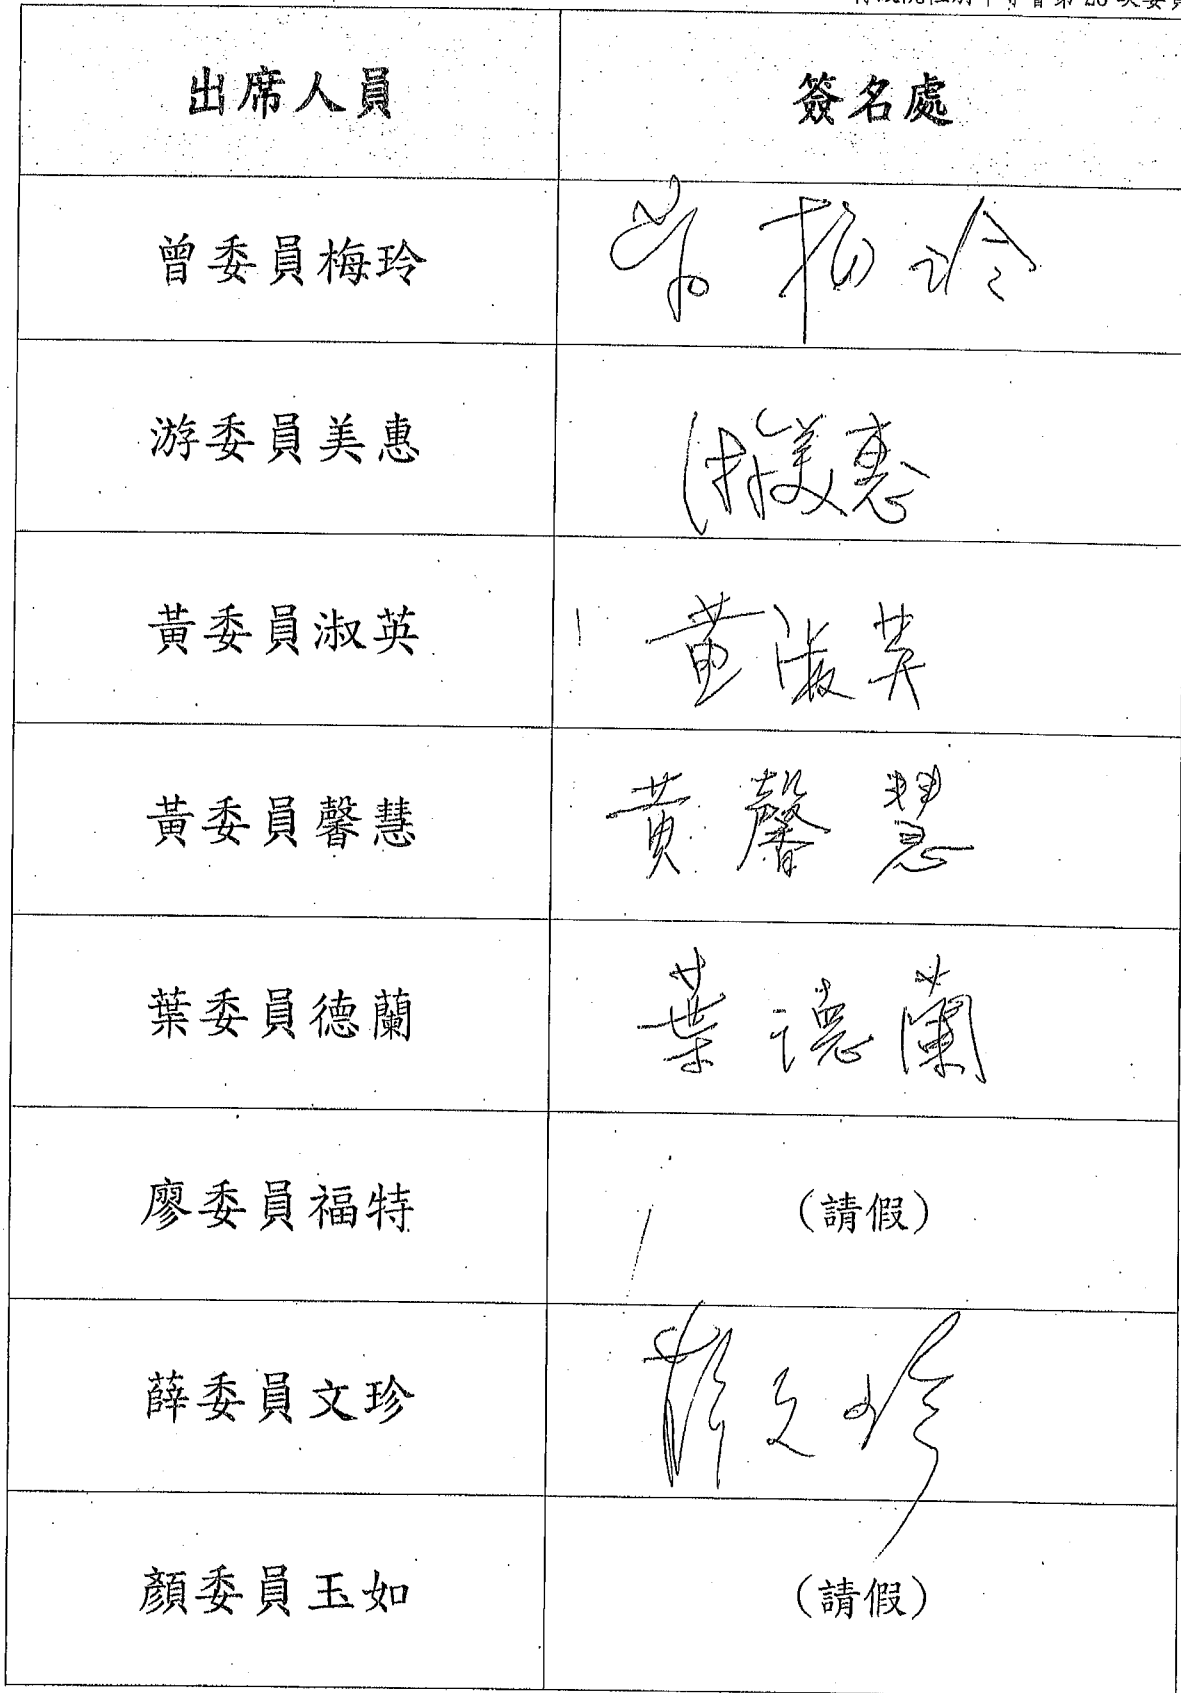 出席人員 簽名處
曾委員梅玲 曾梅玲
游委員美惠 游美惠
黃委員淑英 黃淑英
黃委員馨慧 黃馨慧
葉委員德蘭 葉德蘭
廖委員福特 (請假)
薛委員文珍 薛文珍
顏委員玉如 (請假)